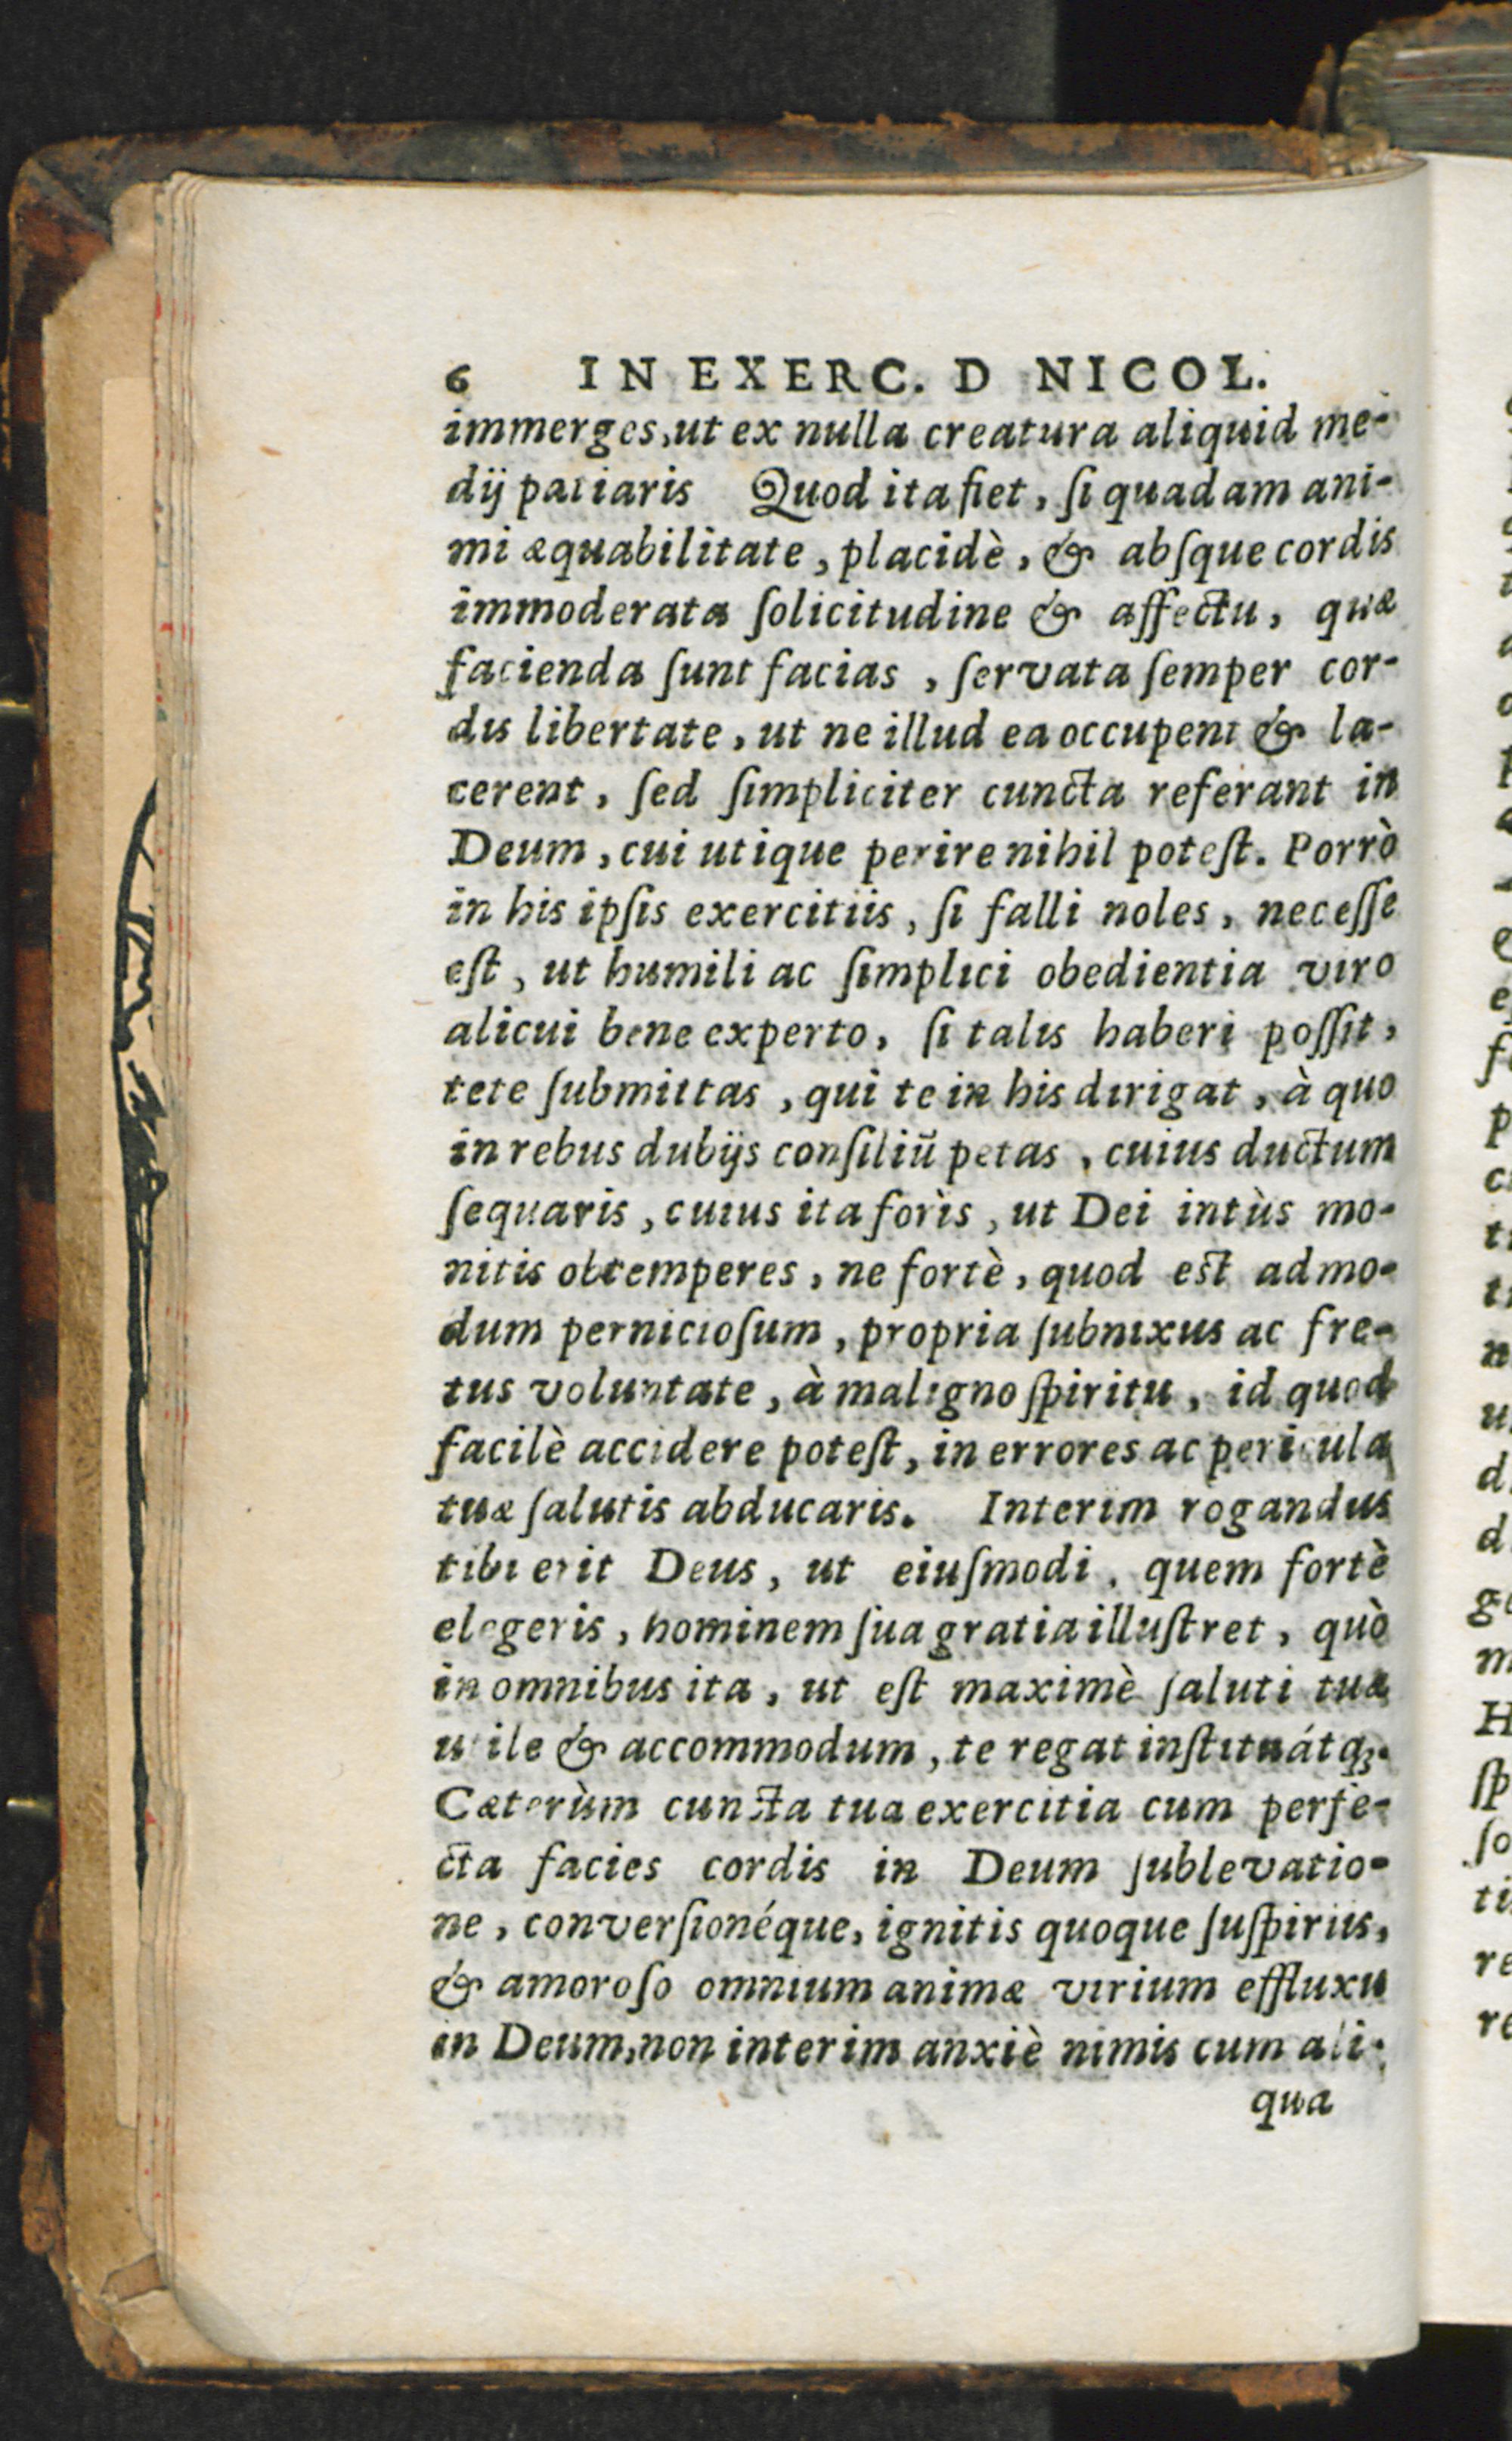 6 IN EXERC. D NICOL.
immerges, ut ex nulla creatura aliquid me-
dij patiaris Quod ita fiet, ſi quadam ani-
mi æquabilitate, placidè, & abſque cordis
immoderata ſolicitudine & affectu, quæ
facienda ſunt facias, ſervata ſemper cor-
dis libertate, ut ne illud ea occupent & la-
cerent, ſed ſimpliciter cuncta referant in
Deum, cui utique perire nihil poteſt. Porrò
in his ipſis exercitiis, ſi falli noles, neceſſe
eſt, ut humili ac ſimplici obedientia viro
alicui bene experto, ſi talis haberi poſſit,
tete ſubmittas, qui te in his dirigat, à quo
in rebus dubijs conſiliũ petas, cuius ductum
ſequaris, cuius ita foris, ut Dei intùs mo-
nitis obtemperes, ne fortè, quod eſt admo-
dum pernicioſum, propria ſubnixus ac fre-
tus voluntate, à maligno ſpiritu, id quod
facilè accidere poteſt, in errores ac pericula
tuæ ſalutis abducaris. Interim rogandus
tibi erit Deus, ut eiuſmodi, quem fortè
elegeris, hominem ſua gratia illuſtret, quò
in omnibus ita, ut eſt maximè ſaluti tuæ
utile & accommodum, te regat inſtituátq;.
Cæterùm cuncta tua exercitia cum perfe-
cta facies cordis in Deum ſublevatio-
ne, converſionéque, ignitis quoque ſuſpiriis,
& amoroſo omnium animæ virium effluxu
in Deum, non interim anxiè nimis cum ali-
qua